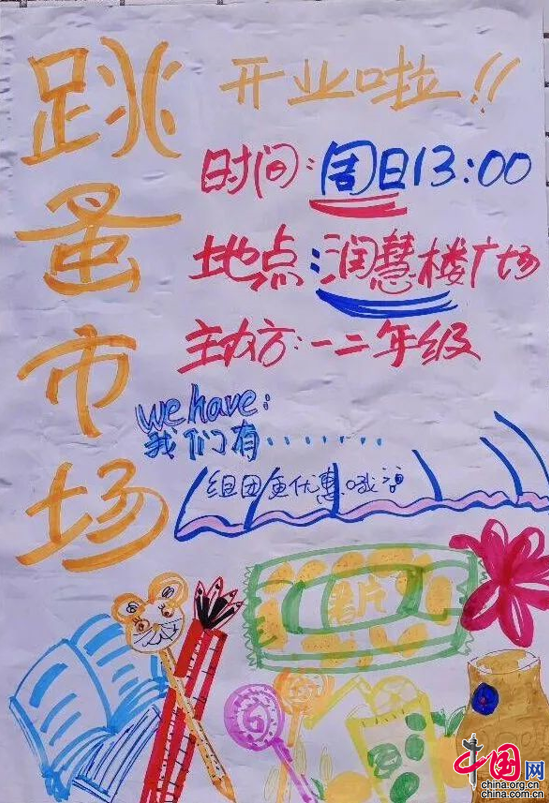 跳蚤市场
开业啦!!
时间:周日13:00
地点:润慧楼广场
主办方:一二年级
we have:
我们有........
组团更优惠哦
薯片
中国网
china.org.cn
china.com.cn